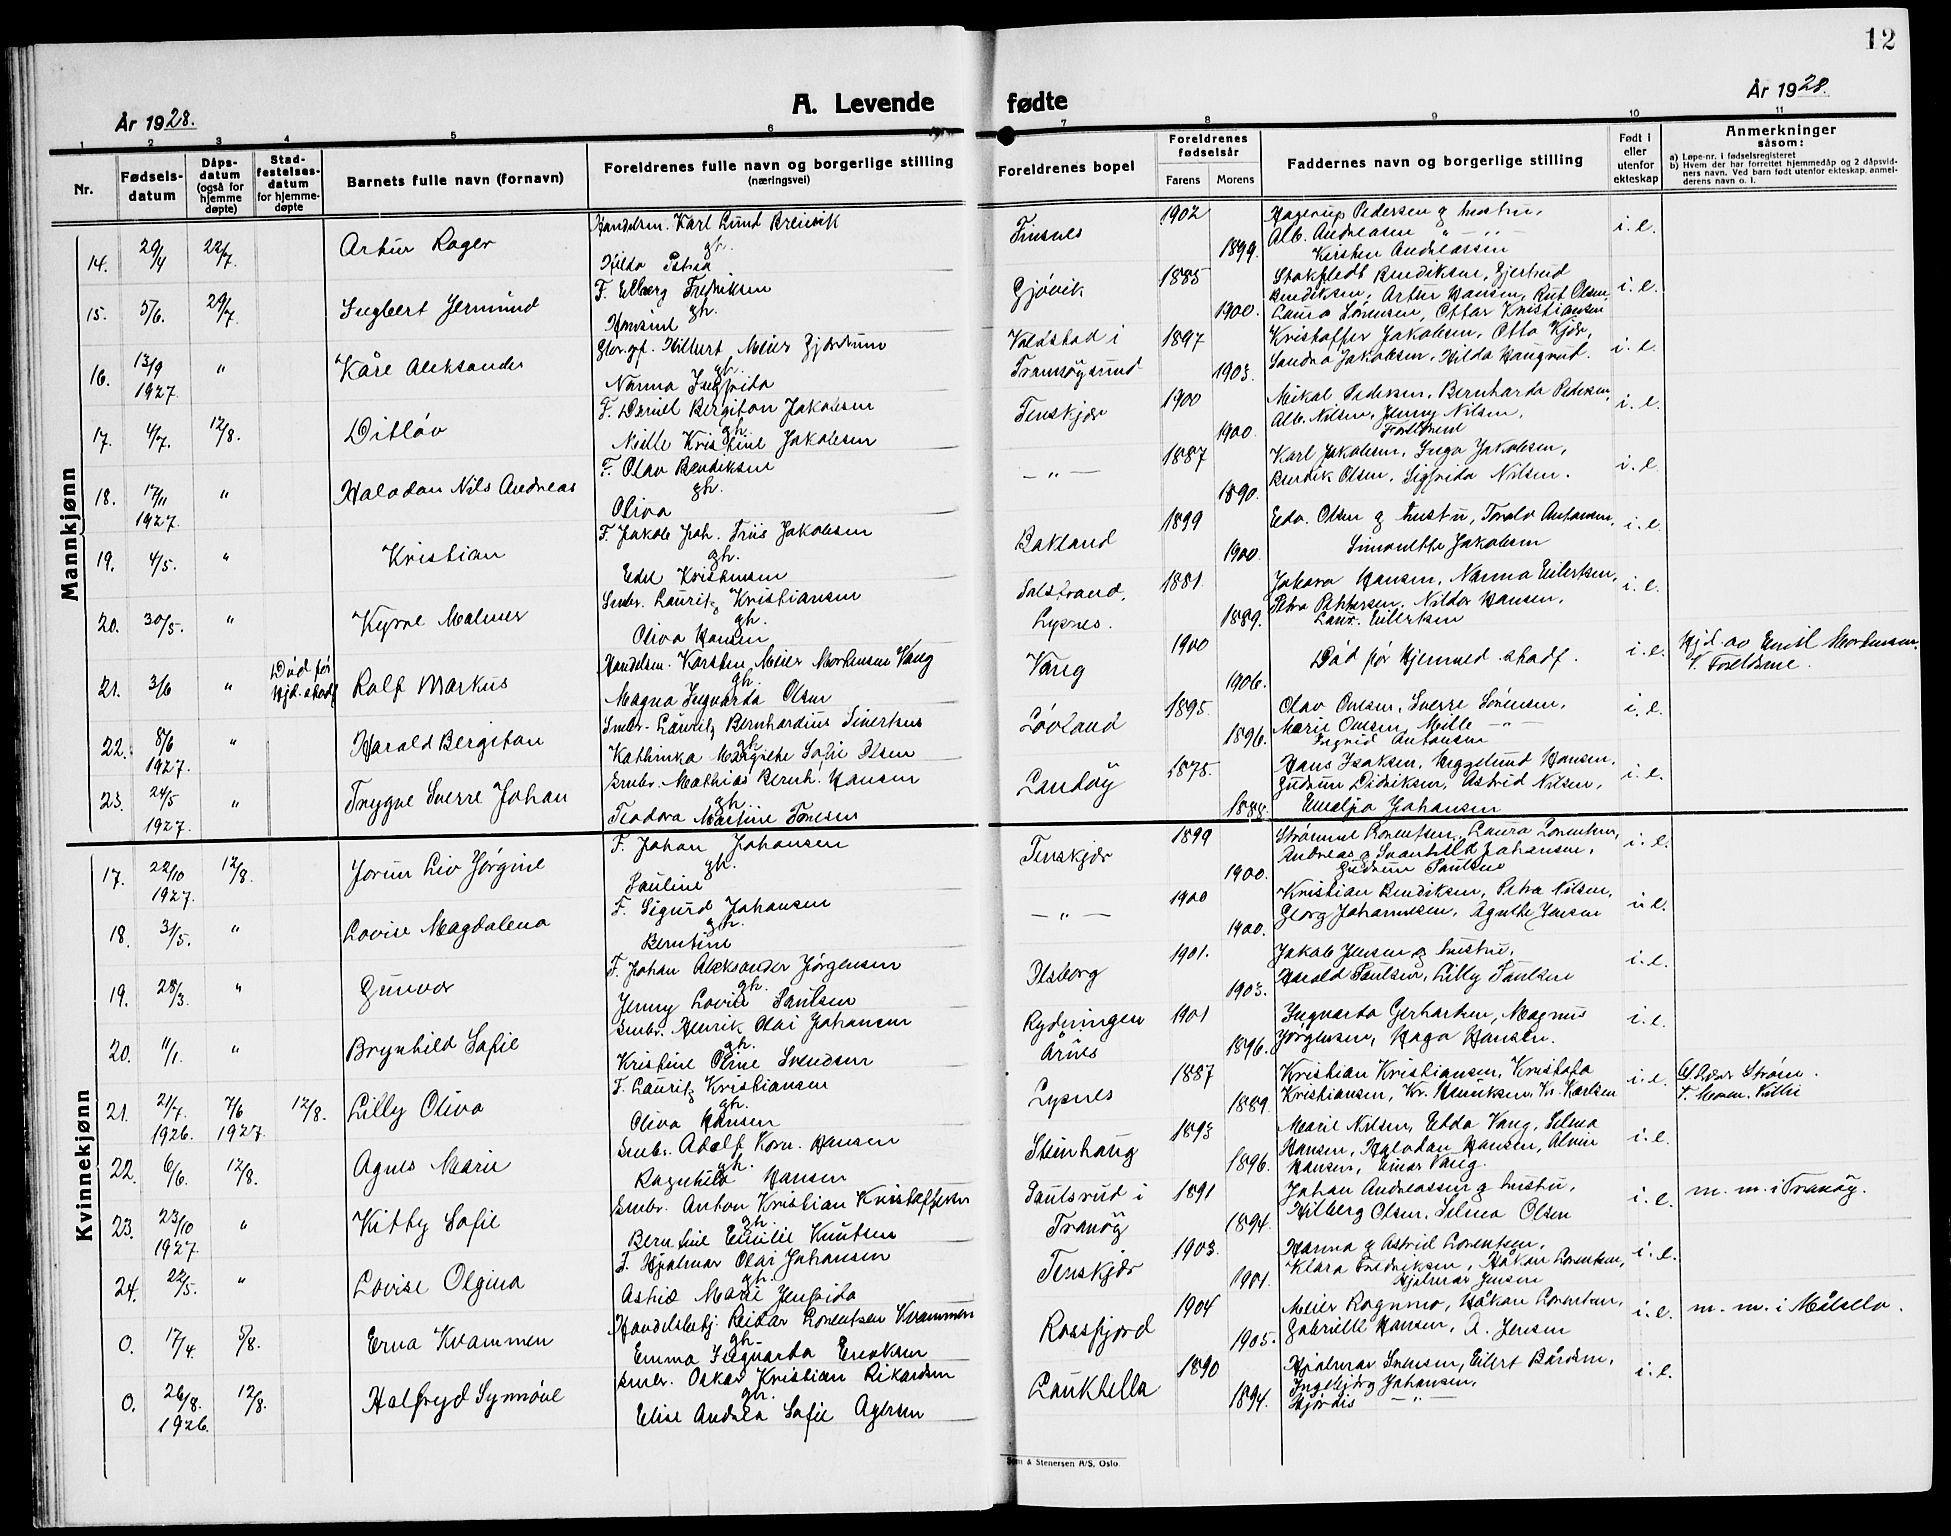 12
År 1928.
A. Levende fødte
År 1928.
1 2 3 4 5 6 7 8 9 10 11
Nr.
Fødsels-
datum
Dåps-
datum
(også for
hjemme
døpte)
Stad-
festelses-
datum
for hjemme-
døpte
Barnets fulle navn (fornavn)
Foreldrenes fulle navn og borgerlige stilling
(næringsvei)
Foreldrenes bopel
Foreldrenes
fødselsår
Farens
Morens
Faddernes navn og borgerlige stilling
Født i
eller
utenfor
ekteskap
Anmerkninger
såsom:
a) Løpe-nr. i fødselsregisteret
b) Hvem der har forrettet hjemmedåp og 2 dåpsvid-
ners navn. Ved barn født utenfor ekteskap. anmel-
derens navn o. l.
Mannkjønn
14. 29/4 22/7. Artur Roger
Handelsm. Karl Lund Breivik
gh.
Hilda Petrea
Finsnes 1902 1899.
Hagerup Pedersen g hustru,
Alb. Andreasen " — " —
Kirsten Andreassen
i. e.
15. 5/6. 29/7 Ingbert Jermund
F. Elberg Fredriksen
gh.
Hansine
Gjøvik 1885 1900.
Stakfledt Bendiksen, Gjertrud
Bendiksen, Artur Hansen, Rut Olsen,
Laura Sørensen, Ottar Kristiansen
i. e.
16. 13/9 1927. " Kåre Aleksander
Hilbert Meier Gjerdrum
gh.
Nanna Ingfrida
Valdstad i
Tranøysund 1897 1903.
Kristoffer Jakobsen, Otto Kjær,
Sandra Jakobsen, Hilda Haugrud.
i. e.
17. 4/7. 12/8. Ditløv
F. Daniel Bergiton Jakobsen
gh.
Mille Kristine Jakobsen
Tenskjær 1900 1900.
Mikal Pedersen, Bernharda Pedersen,
Alb. Nilsen, Jenny Nilsen,
Foreldrene
i. e.
18. 17/11 1927. " Halvdan Nils Andreas
F. Olav Bendiksen
gh.
Oliva
— " — 1887 1890.
Karl Jakobsen, Inga Jakobsen,
Bendik Olsen, Sigfrida Nilsen.
i. e.
19. 4/5. " Kristian
F. Jakob Joh. Friis Jakobsen
gh.
Edel Kristensen
Bakland 1899 1900.
Edv. Olsen g hustru, Torolv Antonsen,
Simonette Jakobsen
i. e.
20. 30/5. " Kyrre Malmer
Smbr. Lauritz Kristiansen
gh.
Oliva Hansen
Salstrand,
Lysnes. 1881 1889.
Johara Hansen, Nanna Eilertsen,
Petra Pettersen, Nildor Hansen,
Laur. Eilertsen
i. e.
21. 3/6 " Død før
hjd. stadf. Rolf Markus
Handelsm. Karsten Meier Mortensen Vang
gh.
Magna Ingvarda Olsen
Vang 1900 1906.
Død før hjemmed. stadf.
i. e.
Hjd. av Emil Mortensen.
V. Foreldrene.
22. 8/6 1927. " Harald Bergiton
Smbr. Lauritz Bernhardius Sivertsen
gh.
Kathinka Margrethe Sofie Olsen
Løvland 1895 1896.
Olav Onsen, Sverre Sørensen,
Marie Onsen, Mille — " —
Ingrid Antonsen
i. e.
23. 24/5 1927. " Trygve Sverre Johan
Smbr. Mathias Bernh. Hansen
gh.
Teodora Martine Tonesen
Landøy 1878. 1888.
Hans Isaksen, Heggelund Hansen,
Gudrun Didriksen, Astrid Nilsen,
Emelja Johansen
i. e.
Kvinnekjønn
17. 22/10 1927. 12/8. Jorun Liv Jørgine
F. Johan Johansen
gh.
Pauline
Tenskjær 1899 1900.
Strømme Lorentsen, Laura Lorentsen,
Andreas g Svanhild Johansen,
Gudrun Paulsen
i. e.
18. 31/5. " Lovise Magdalena
F. Sigurd Johansen
gh.
Berntine
— " — 1900 1900.
Kristian Bendiksen, Petra Nilsen,
Georg Johannesen, Agnethe Jensen
i. e.
19. 28/3. " Gunvor
F. Johan Aleksander Jørgensen
gh.
Jenny Lovise Paulsen
Olsborg 1901. 1903.
Jakob Jensen g hustru,
Harald Paulsen, Lilly Paulsen
i. e.
20. 11/1. " Brynhild Sofie
Smbr. Henrik Olai Johansen
gh.
Kristine Oline Svendsen
Rydningen
Årnes 1901 1896.
Ingvarda Gerhartsen, Magnus
Jørgensen, Haga Hansen.
i. e.
21. 21/7. 1926. 7/6 1927. 12/8. Lilly Oliva
F. Lauritz Kristiansen
gh.
Oliva Hansen
Lysnes 1887 1889.
Kristian Kristiansen, Kristofa
Kristiansen, Kr. Henriksen, Kr. Karlsen
i. e.
22. 6/6. 12/8. Agnes Marie
Smbr. Adolf Korn. Hansen
gh.
Ragnhild Hansen
Stenhaug 1893 1896.
Marie Nilsen, Edda Vang, Selma
Hansen, Halvdan Hansen, Alvin
Hansen, Einar Vang.
i. e.
23. 23/10 1927. " Kitty Sofie
Smbr. Anton Kristian Kristoffersen
gh.
Berntine Emilie Knutsen
Paulsrud i
Tranøy 1891 1894.
Johan Andreassen g hustru,
Hilberg Olsen, Selma Olsen
i. e.
m. m. i Tranøy.
24. 22/5. " Lovise Olgina
F. Hjalmar Olai Johansen
gh.
Astrid Marie Jenfrida
Tenskjær 1903. 1901.
Hanna g Astrid Lorentsen,
Klara Fredriksen, Håkon Lorentsen,
Hjalmar Jensen
i. e.
0. 17/4. 5/8. Erna Kvammen
Handelsbetj. Reidar Lorentsen Kvammen
gh.
Emma Ingvarda Enoksen
Rossfjord 1904 1905.
Meier Rognmo, Håkon Lorentsen,
Gabrielle Hansen, A. Jensen
i. e.
m. m. i Målselv.
0. 26/8. 1926. 12/8. Halfryd Synnøve
Smbr. Oskar Kristian Rikardsen
gh.
Elise Andrea Sofie Agersen
Laukhella 1890 1894.
Hjalmar Svensen, Eilert Bårdsen,
Ingebjørg Johansen,
Hjördis — " —
i. e.
& Stenersen A/S, Oslo.